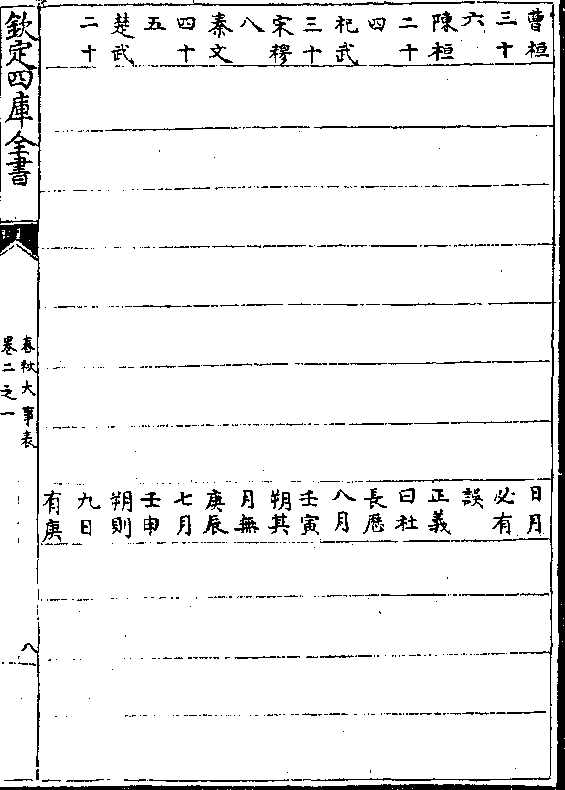 曹桓
三十
六
陳桓
二十
四
杞武
三十
宋穆
八
秦文
四十
五
楚武
二十
日月
必有
誤
正義
曰社
長厯
八月
壬寅
朔其
月無
庚辰
七月
壬申
朔則
九日
有庚
欽定四庫全書
春秋大事表
卷二之一
八